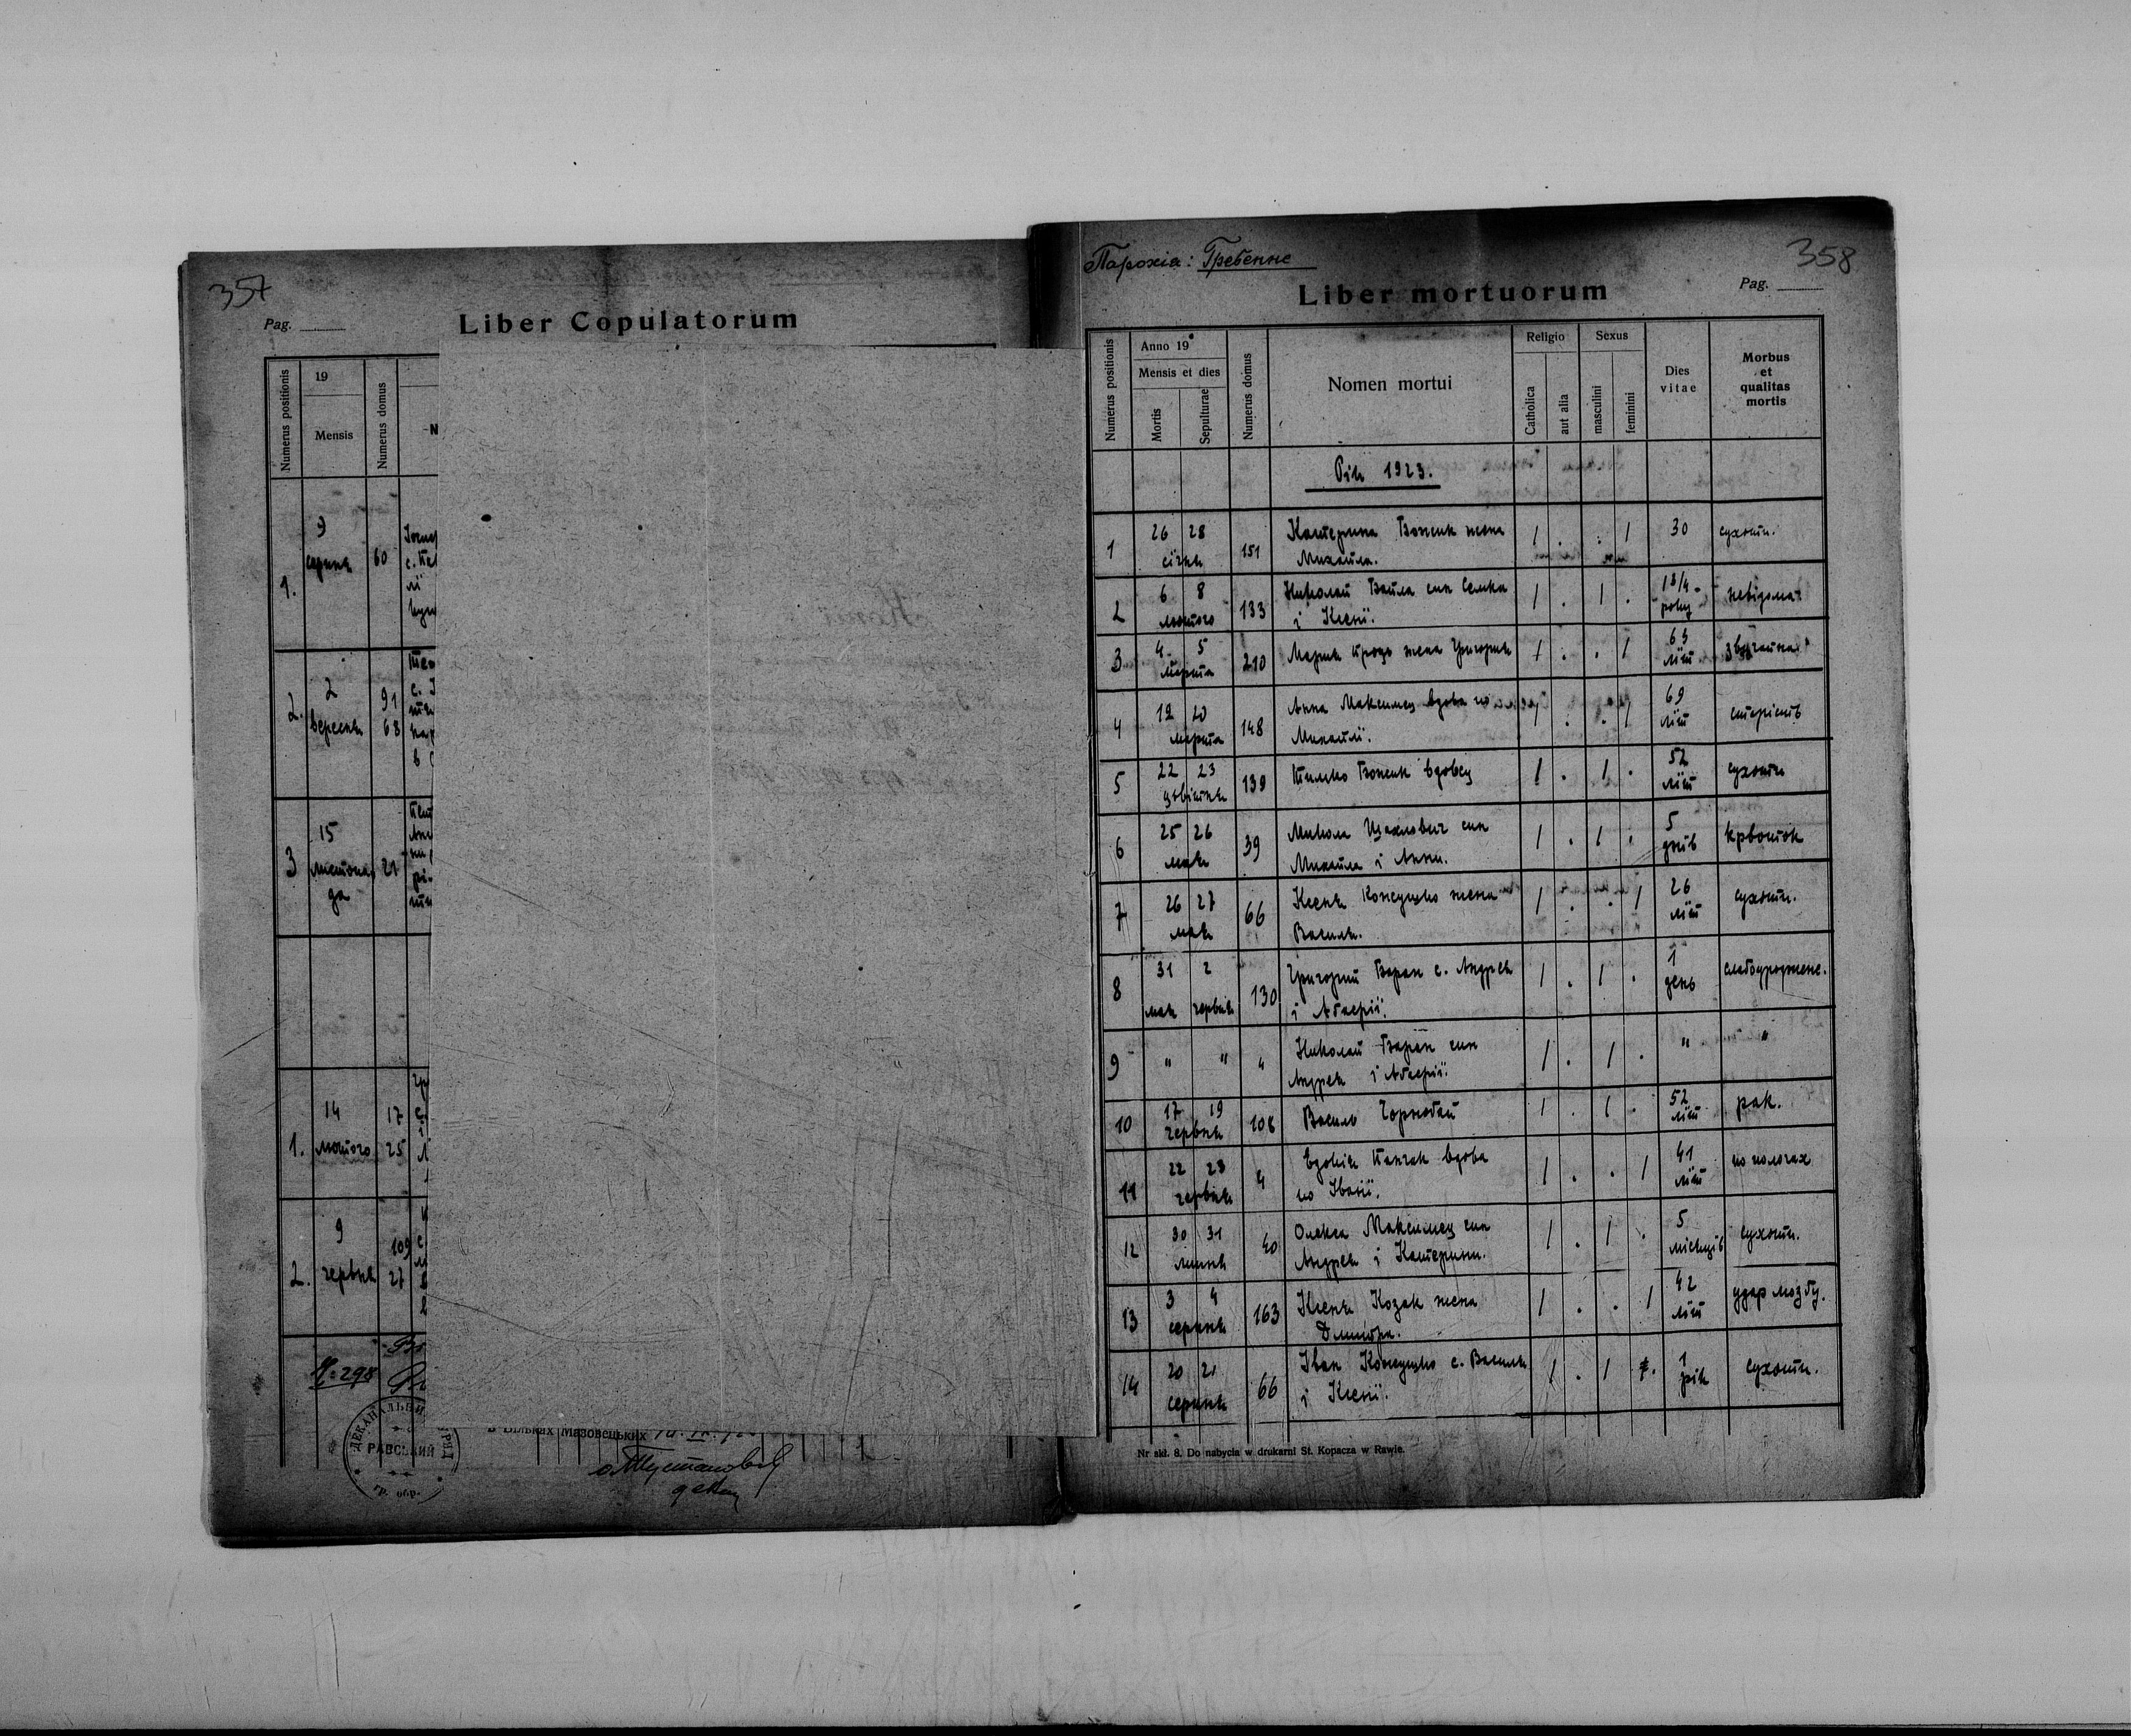 357
Pag.
Liber Copulatorum
Numerus positionis
19
Mensis
Numerus domus
N
1.
9
серпня
60
2.
2
вересня
91
68
3
15
листопа
да
21
1.
14
лютого
17
25
2.
9
червня
109
27
№ 298
ДЕКАНАЛЬНИЙ УРЯД
РАВСЬКИЙ
гр. обр.
Вільках Мазовецьких
Парохія: Гребенне
358
Liber mortuorum
Pag.
Numerus positionis
Anno 19
Mensis et dies
Mortis
Sepulturae
Numerus domus
Nomen mortui
Religio
Catholica
aut alia
Sexus
masculini
feminini
Dies
vitae
Morbus
et
qualitas
mortis
Рік 1923.
1 26 28 151 Катерина Божик жена 1 . . 1 30 сухоти.
січня Михайла.
2 6 8 133 Николай Байла син Семка 1 . 1 . 1 3/4 невідома
лютого і Ксенї. року
3 4 5 210 Мария Троць жена Григория 1 . . 1 63 звичайна
марта літ
4 19 20 148 Анна Максимец вдова по 1 . . 1 69 старість
марта Михайлї. літ
5 22 23 139 Тимко Божик вдовец 1 . 1 . 52 сухоти
цьвітня літ
6 25 26 39 Микола син 1 . 1 . 5 крвоток
мая Михайла і Анни. днїв
7 26 27 66 Ксеня Кожушко жена 1 . . 1 26 сухоти.
мая Василя. літ
8 31 2 130 Григорий Баран с. Андрея 1 . 1 . 1 слабоурожденє.
мая червня і день
9 " " " Николай Баран син 1 . 1 . " "
Андрея і
10 17 19 108 Василь Чорнобай 1 . 1 . 52 рак.
червня літ
11 22 23 4 Евдокія вдова 1 . . 1 41 по пологах
червня по Іванї. літ
12 30 31 40 Олекса Максимец син 1 . 1 . 5 сухоти.
липня Андрея і Катерини. місяцїв
13 3 4 163 Ксеня Козак жена 1 . . 1 42 удар мозґу.
серпня Дмитра. літ
14 20 21 66 Іван Кожушко с. Василя 1 . 1 . 1 сухоти.
серпня і Ксенї. рік
Nr skł. 8. Do nabycia w drukarni St. Kopacza w Rawie.